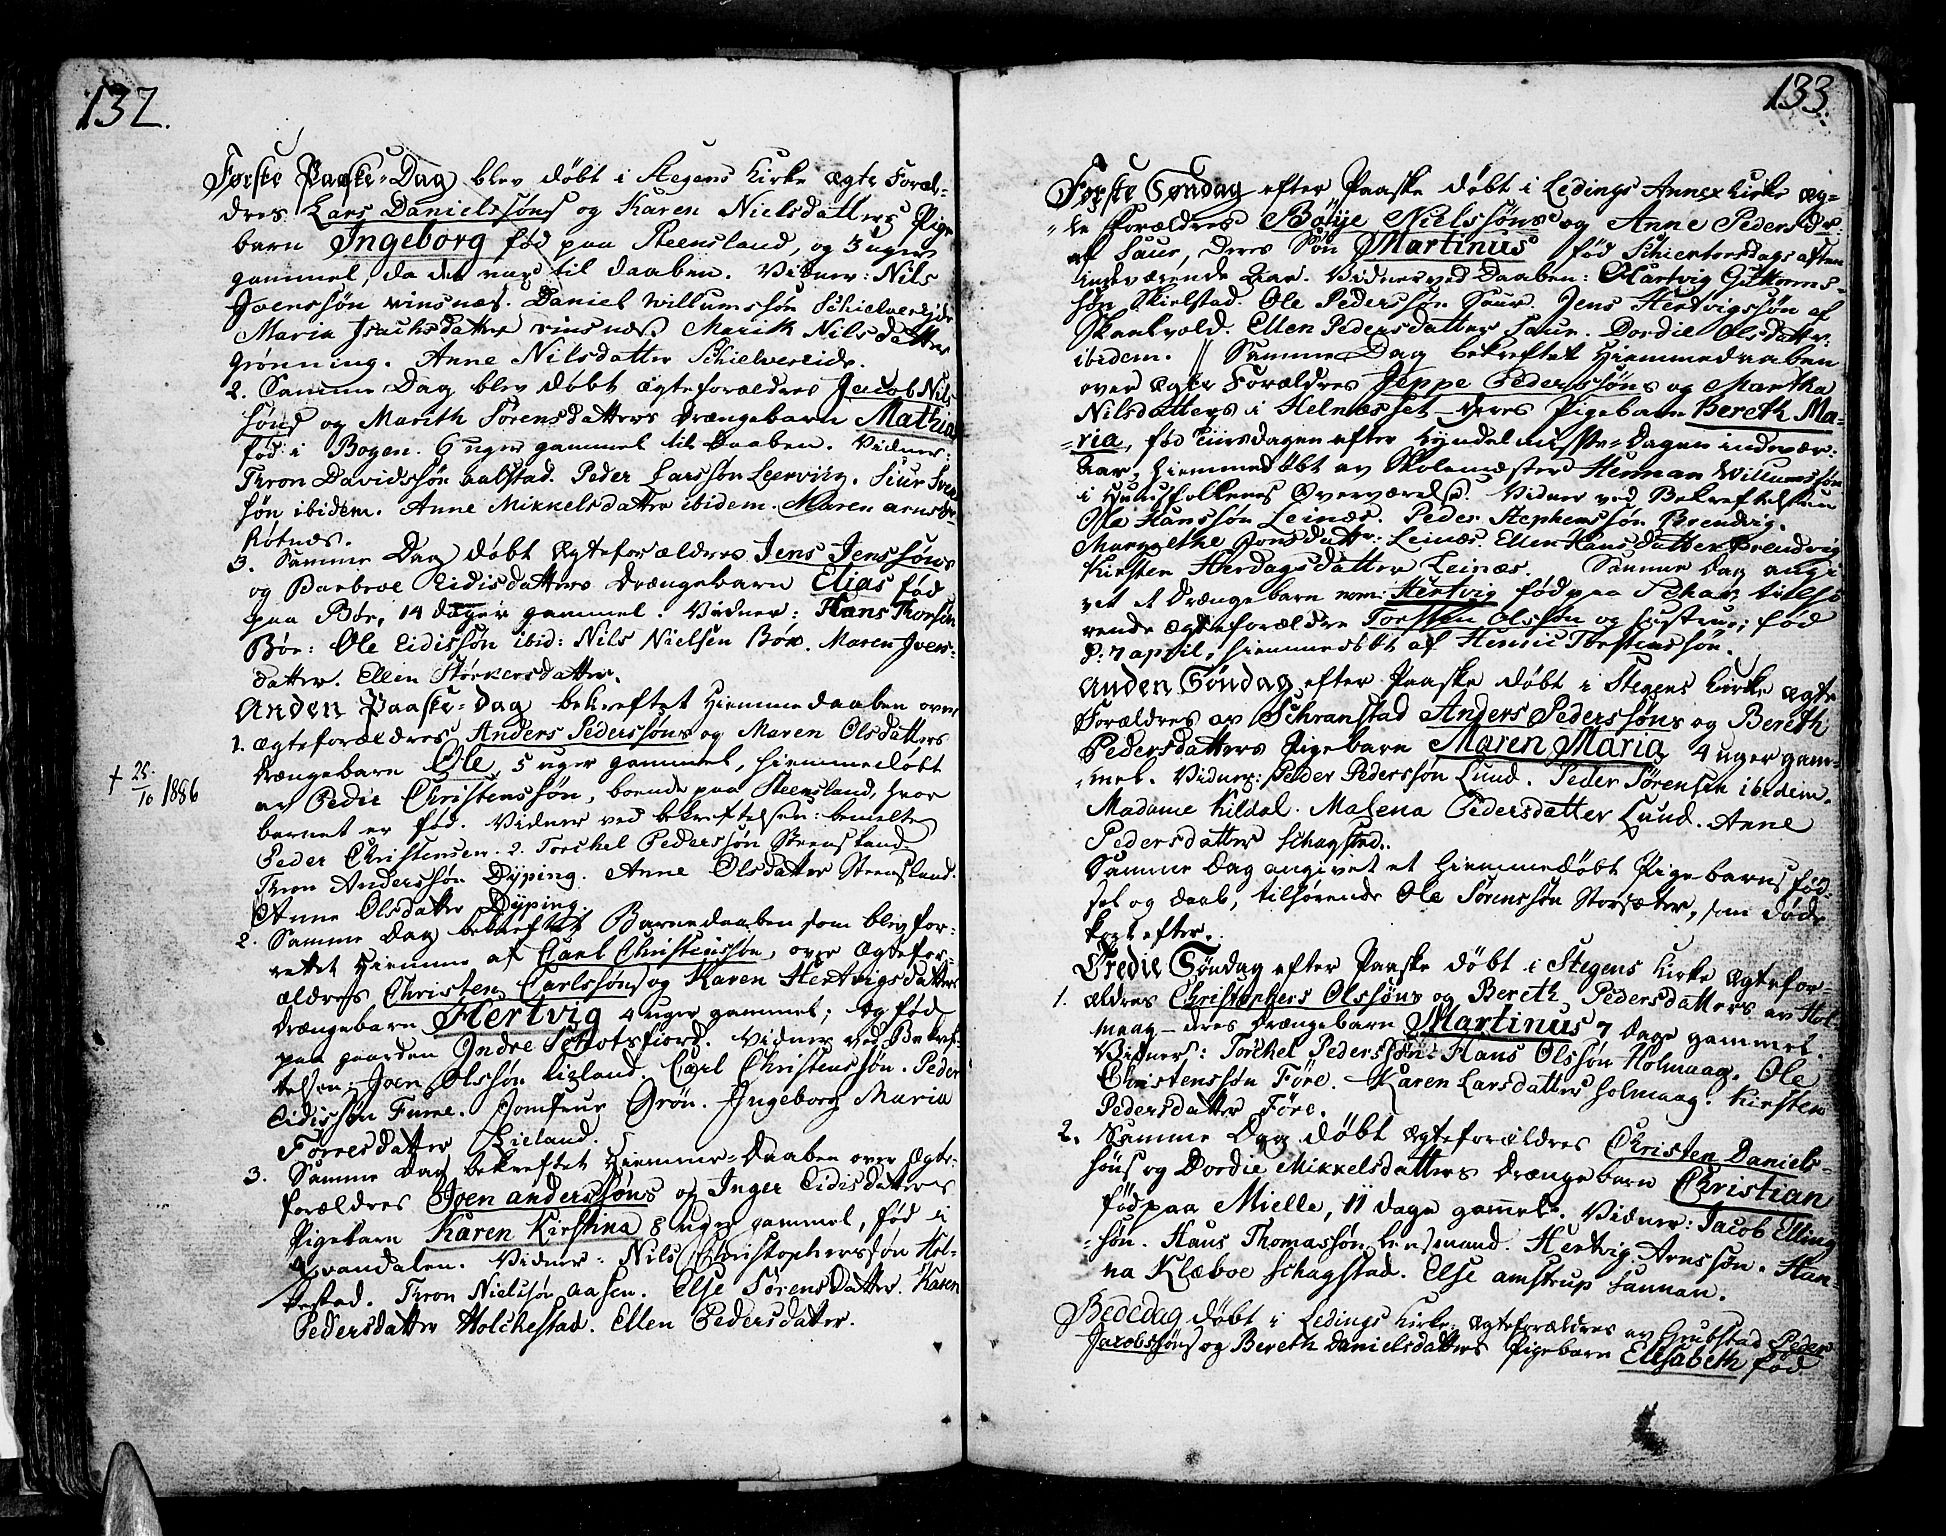 132.
Første Paaske-Dag blev døbt i Stegens Kirke Ægte Foræl-
dres Lars Danielssøns og Karen Nielsdatters Pige
barn Ingeborg fød paa Steensland, og 3 uger
gammel, da det var til daaben. Vidner: Nils
Joenssøn vinsnæs. Daniel Willumssøn Schielvereide
Maria Isachsdatter vinsnæs Marith Nilsdatter
Grønning. Anne Nilsdatter Schielvereide.
2. Samme Dag blev døbt Ægteforældres Jacob Nils
søns og Marith Sørensdatters drængebarn Mathias
fød i Bogen. 6 uger gammel til Daaben. Vidner:
Thron Davidssøn aalstad. Peder Larssøn Leervig. Siur
søn ibidem. Anne Mikkelsdatter ibidem. Maren
Røtnæs.
3. Samme Dag døbt Ægteforældres Jens Jenssøns
og Barbroe Eidisdatters drængebarn Elias fød
paa Bøe, 14 dager gammel. Vidner: Hans Thorsøn
Bøe: Ole Eidissøn ibid: Nils Nielsen Bøe. Maren Joens-
datter. Ellen Størkersdatter.
Anden Paaske-Dag bekreftet Hiemmedaaben over
1. Ægteforældres Anders Pederssøns og Maren Olsdatters
drængebarn Ole, 5 uger gammel, hiemmedøbt
av Peder Christenssøn, boende paa Steensland, hvor
+ 25/10 1886
barnet er fød. Vidner ved bekreftelsen: bemelte
Peder Christensen. 2. Torchel Pederssøn Steensland
Thron Anderssøn Dyping. Anne Olsdatter Steensland.
Anne Olsdatter Dyping.
2. Samme Dag bekreftet Barnedaaben som blev for-
rettet Hiemme af Carl Christenssøn, over Ægtefor-
ældres Christen Carlssøns og Karen Hertvigsdatters
drængebarn Hertvig 4 uger gammel; og fød
paa gaarden Indre Schotsfiord. Vidner ved Bekref-
telsen: Joen Olssøn Lieland. Carl Christenssøn. Peder
Eidissøn Furre. Jomfrue Grøn. Ingeborg Maria
Torresdatter Lieland.
3. Samme Dag bekreftet Hiemme-Daaben over Ægte-
forældres Joen anderssøns og Inger Eidisdatters
Pigebarn Karen Kirstina 8 uger gammel, fød i
qvandalen. Vidner: Nils Christopherssøn Hol-
kestad. Thron Nielssøn aasen. Else Sørensdatter. Karen
Pedersdatter Holchestad. Ellen Pedersdatter.
133.
Første Søndag efter Paaske døbt i Ledings Annex Kirke Æg-
te Forældres Böye Nielssøns og Anne Pedersdr.
af Saur, deres Søn Martinus fød Schiertorsdags aften
indeværende aar. Vidner ved Daaben: Hartvig Guttorms-
søn Skielstad. Ole Pederssøn Saur. Jens Hertvigssøn af
Skaalvold. Ellen Pedersdatter Saur. Dordie Olsdatter
ibidem. // Samme Dag bekreftet Hiemmedaaben
over Ægte Forældres Jeppe Pederssøns og Martha
Nilsdatters i Helnæsset deres Pigebarn Bereth Ma-
ria, fød tiirsdagen efter Kyndelmisse-Dagen indevær.
aar, hiemmedøbt av Skolemester Herman Willumssøn
i Huusfolkenes Overværelse. Vidner ved Bekreftelsen
Ole Hanssøn Leinæs. Peder Stephenssøn Brendvig.
Margrethe Jonsdatter: Leinæs. Ellen Hansdatter Brendvig
Kirsten Herdagsdatter Leinæs. Samme Dag angi
vet et drængebarn nom: Hertvig fød paa tilhø
rende Ægteforældre Torsten Olssøn og hustrue; fød
d: 7 april, hiemmedøbt af Henric Torstenssøn.
Anden Søndag efter Paaske døbt i Stegens Kirke Ægte
Forældres av Schranstad Anders Pederssøns og Bereth
Pedersdatters Pigebarn Maren Maria 4 uger gam-
mel. Vidner: Peder Pederssøn Lund. Peder Sørensen ibidem.
Madame Kildal. Malena Pedersdatter Lund. Anne
Pedersdatter Schagstad.
Samme Dag angivet et hiemmedøbt Pigebarns fød-
sel og daab, tilhørende Ole Sørenssøn Storsæter, som døde
kort efter.
Tredie Søndag efter Paaske døbt i Stegens Kirke Ægtefor-
1. ældres Christophers Olssøns og Bereth Pedersdatters av Hol-
maag deres drængebarn Martinus 7 dage gammel.
Vidner: Torchel Pederssøn. Hans Olssøn Holmaag. Ole
Christenssøn Føre. Karen Larsdatter Holmaag. Kirsten
Pedersdatter Føre.
2. Samme Dag døbt Ægteforældres Christen Daniels-
søns og Dordie Mikkelsdatters drængebarn Christian
fød paa Mielle, 11 dage gammel. Vidner: Jacob Elling
søn. Hans Thomassøn lensmand. Hertvig Arnssøn. Han-
na Klæboe Schagstad. Else amstrup Sannan.
Bededag døbt i Ledings Kirke: Ægteforældres av Grubstad Peder
Jacobssøns og Bereth Danielsdatters Pigebarn Elisabeth fød